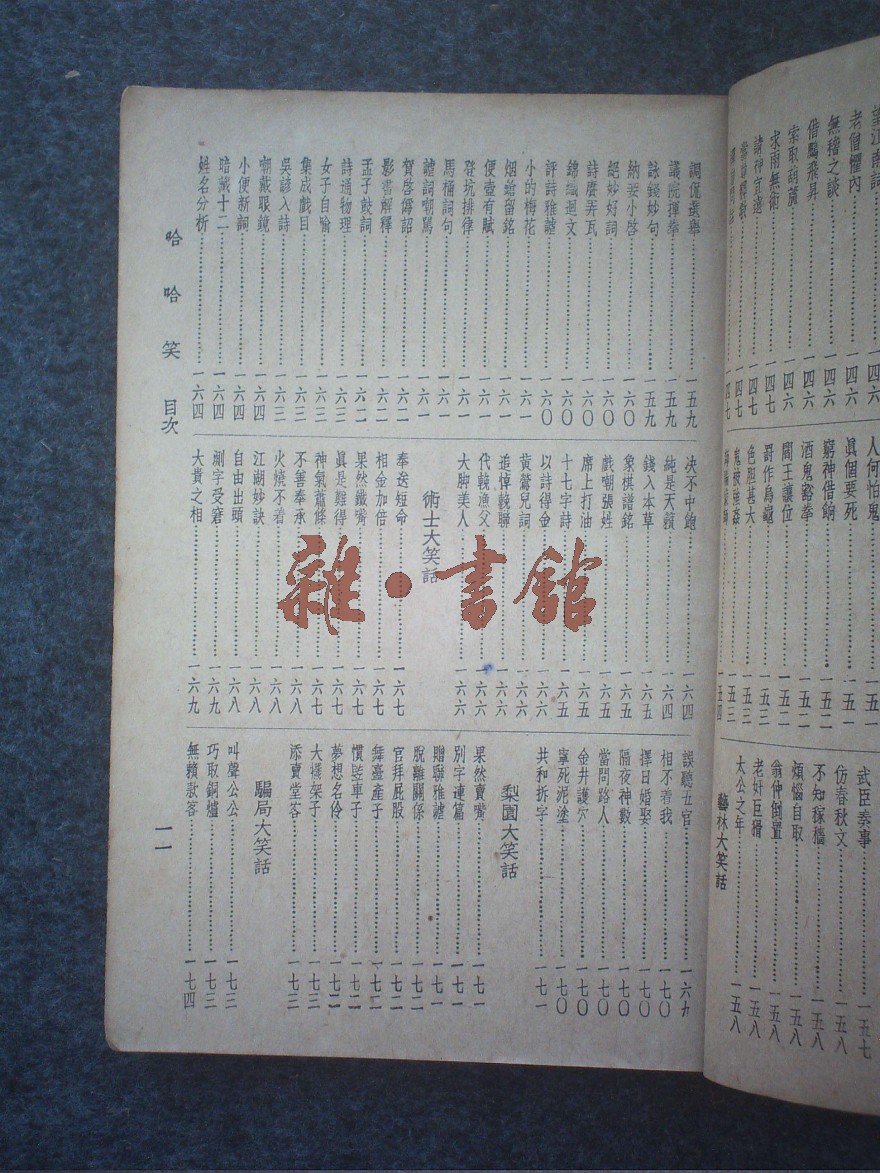 老僧懼內……一四六
無稽之談……一四六
借鷄飛昇……一四六
索取葫蘆……一四六
求雨無術……一四七
人何怕鬼……一五一
眞個要死……一五一
窮神借餉……一五二
酒鬼豁拳……一五二
閻王讓位……一五二
罰作烏龜……一五三
色胆甚大……一五三
武臣奏事……一五七
仿春秋文……一五八
不知稼穡……一五八
煩惱自取……一五八
翁仲倒置……一五八
老奸巨猾……一五八
太公之年……一五八
藝林大笑話
調侃選舉……一五九
議院揮拳……一五九
詠錢妙句……一五九
納妾小啓……一六〇
絕妙好詞……一六〇
詩賡弄瓦……一六〇
錦織迴文……一六〇
評詩雅謔……一六〇
小的梅花……一六一
烟鎗留銘……一六一
便壺有賦……一六一
登坑排律……一六一
馬桶詞句……一六一
謔詞嘲駡……一六一
賀啓僞詔……一六二
影書解釋……一六二
孟子鼓詞……一六二
詩通物理……一六三
女子自喻……一六三
集成戲目……一六三
吳諺入詩……一六三
嘲戴眼鏡……一六四
小便新詞……一六四
暗藏十二……一六四
姓名分析……一六四
決不中鎗……一六四
純是天籟……一六五
錢入本草……一六五
象棋譜銘……一六五
戲嘲張姓……一六五
席上打油……一六五
十七字詩……一六五
以詩得金……一六六
黃鶯兒詞……一六六
追悼輓聯……一六六
代輓漁父……一六六
大脚美人……一六六
術士大笑話
奉送短命……一六七
相金加倍……一六七
果然鐵嘴……一六七
眞是難得……一六七
神氣蕭條……一六七
不善奉承……一六八
火燒不着……一六八
江湖妙訣……一六八
自由出頭……一六八
測字受窘……一六九
大貴之相……一六九
誤聽女官……一六九
相不着我……一七〇
擇日婚娶……一七〇
隔夜神數……一七〇
當問路人……一七〇
金井護穴……一七〇
寧死泥塗……一七〇
共和拆字……一七一
梨園大笑話
果然賣嘴……一七一
別字連篇……一七一
贈聯雅謔……一七一
脫離關係……一七二
官拜屁股……一七二
舞臺產子……一七二
慣嫖車子……一七二
夢想名伶……一七二
大擺架子……一七三
添賣堂客……一七三
騙局大笑話
叫聲公公……一七三
巧取銅爐……一七三
無賴歀客……一七四
哈哈笑 目次
一一
雜·書館